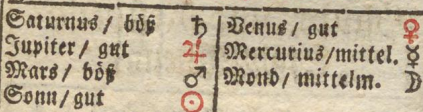 Saturnus / böß ♄
Jupiter / gut ♃
Mars / böß ♂
Sonn / gut ☉
Venus / gut ♀
Mercurius / mittel. ☿
Mond / mittelm. ☽